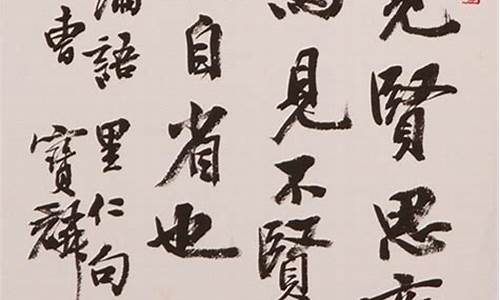 見賢思齊
焉見不賢
自省也
論語里仁句
曹寶麟